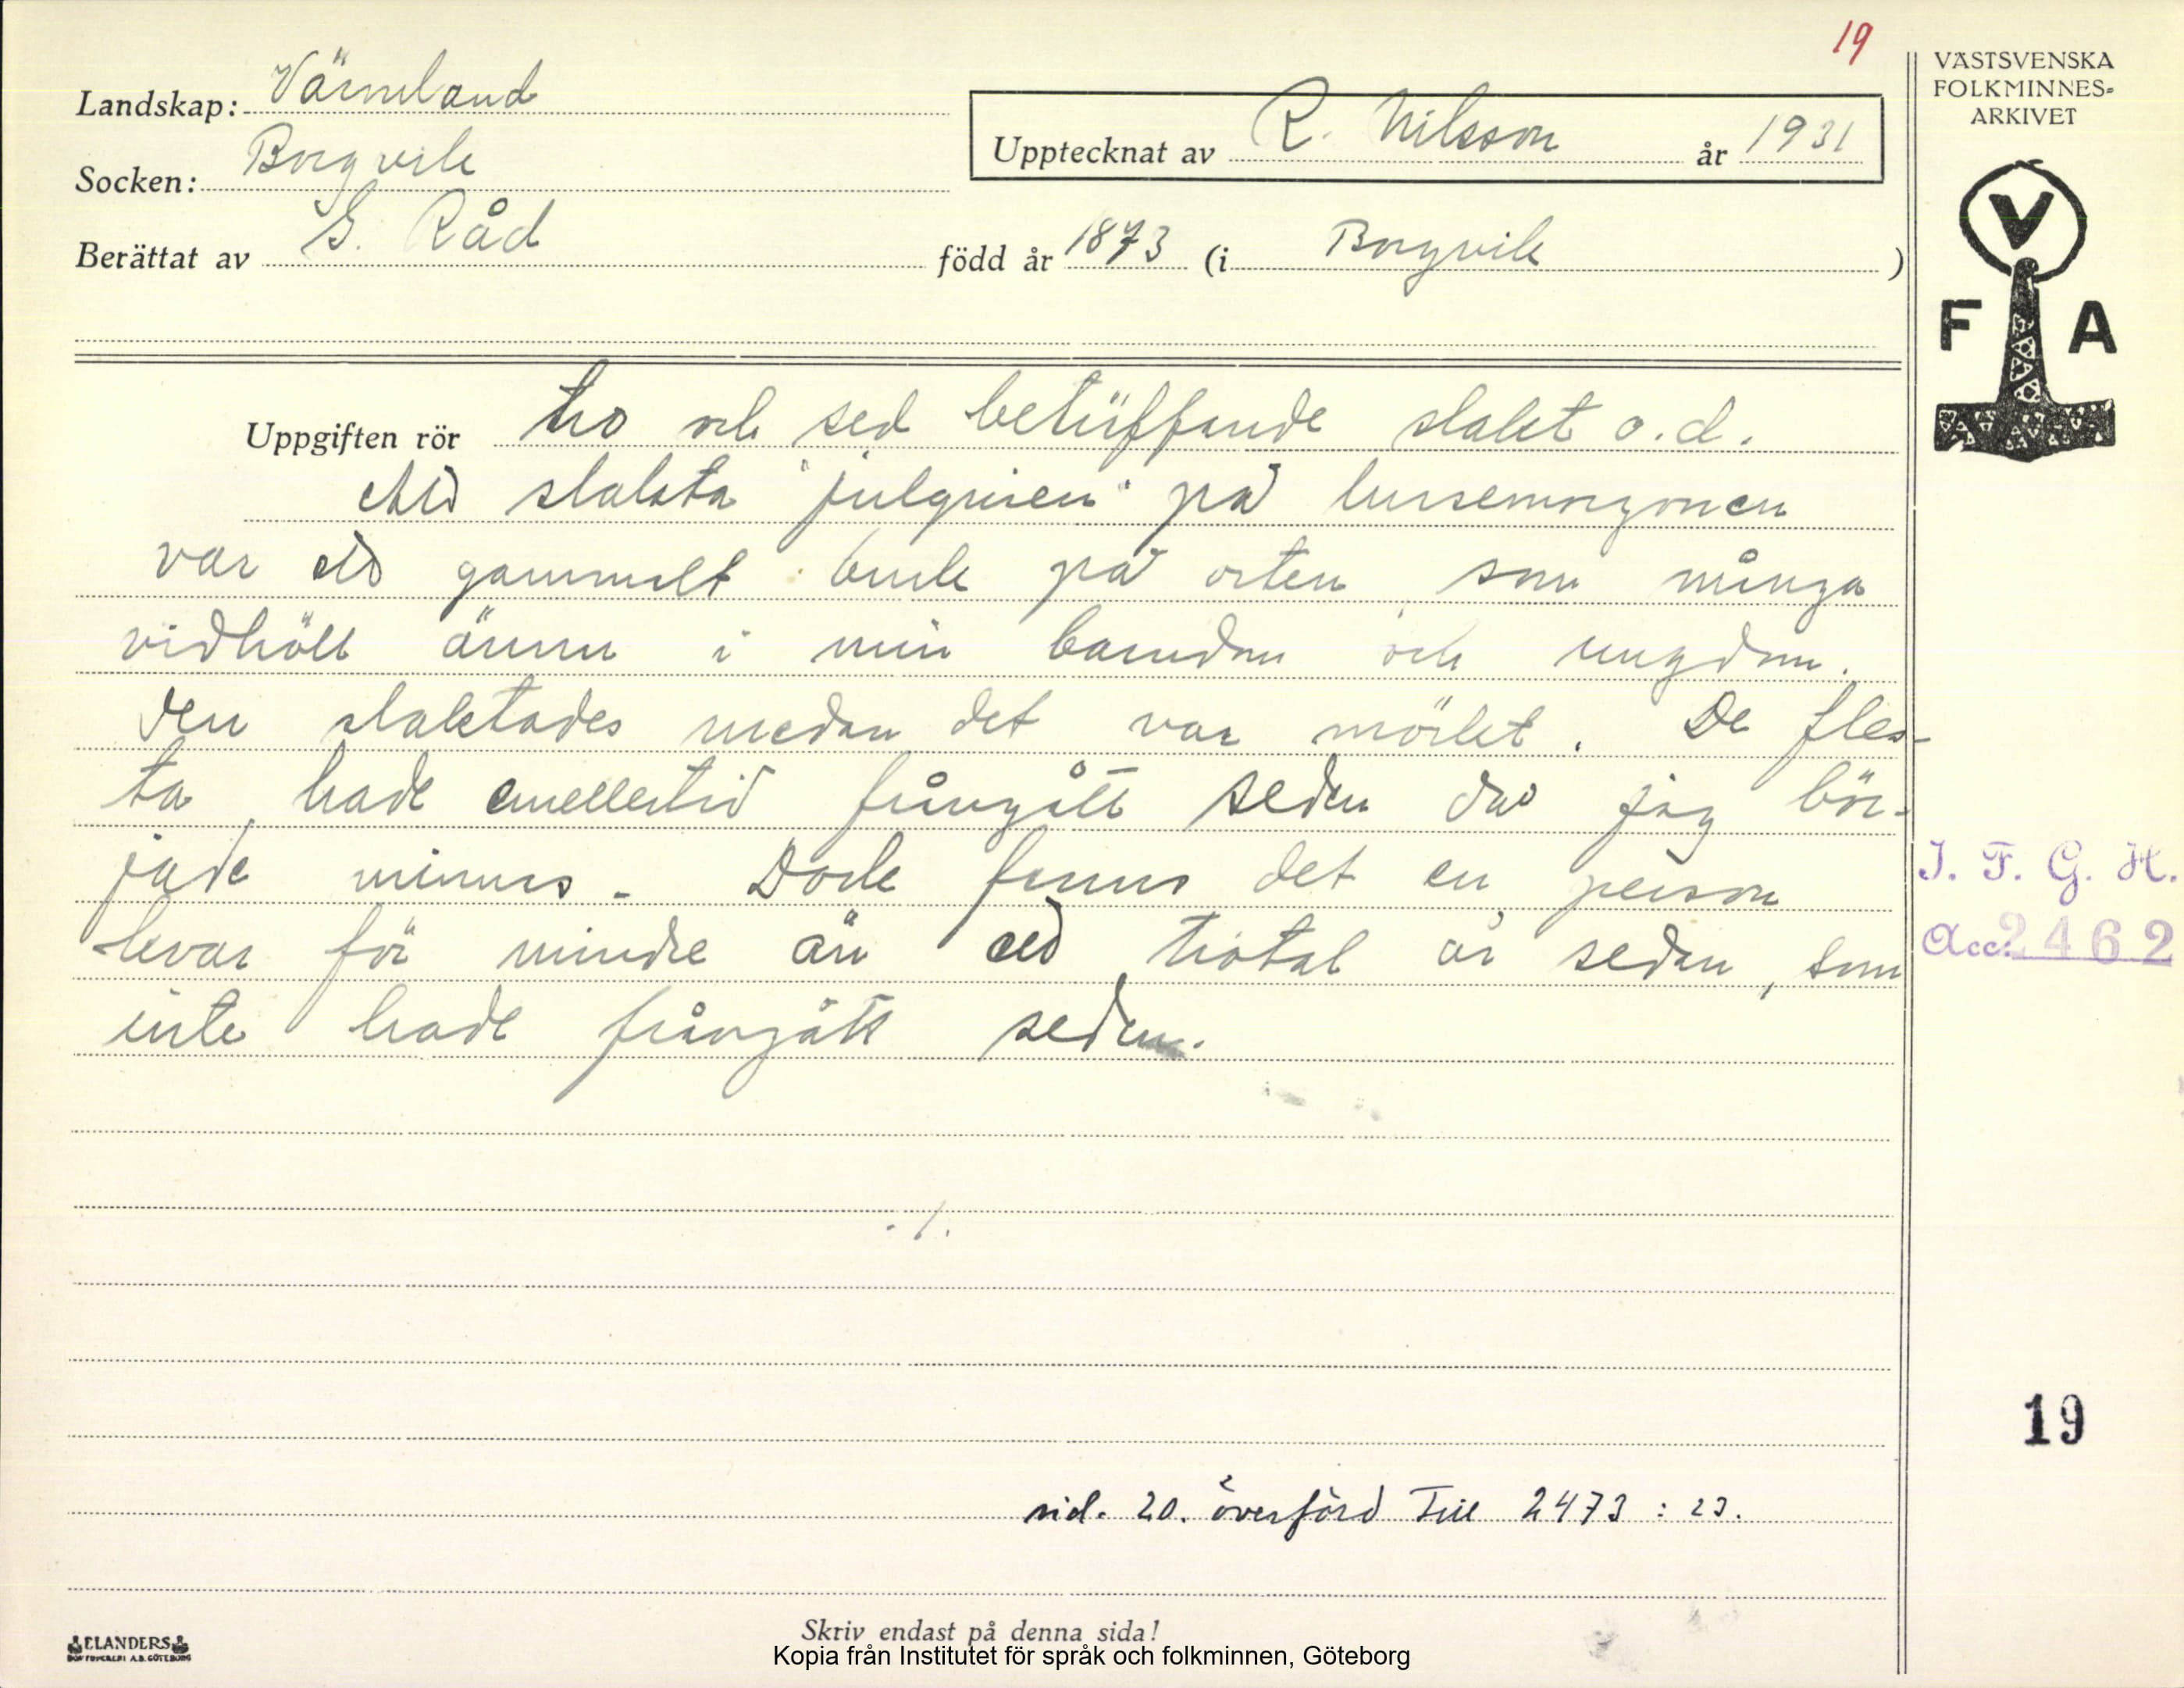 19
VÄSTSVENSKA
FOLKMINNES-
ARKIVET
Landskap: Värmland
Socken: Borgvik
Upptecknat av R. Nilsson år 1931
Berättat av G. Råd född år 1873 (i Borgvik )
V
F A
Uppgiften rör tro och sed beträffande slakt o.d.
Att slakta "julgrisen" på lussemorgonen
var ett gammalt bruk på orten, som många
vidhöll ännu i min barndom och ungdom.
Den slaktades medan det var mörkt. De fles-
ta hade emellertid frångått seden då jag bör-
jade minnas. Dock fanns det en person
kvar för mindre än ett tiotal år sedan, som
inte hade frångått seden.
I. F. G. H.
Acc. 2462
./.
19
sid. 20. överförd till 2473 : 23.
Skriv endast på denna sida!
ELANDERS
BOKTRYCKERI A.B. GÖTEBORG
Kopia från Institutet för språk och folkminnen, Göteborg